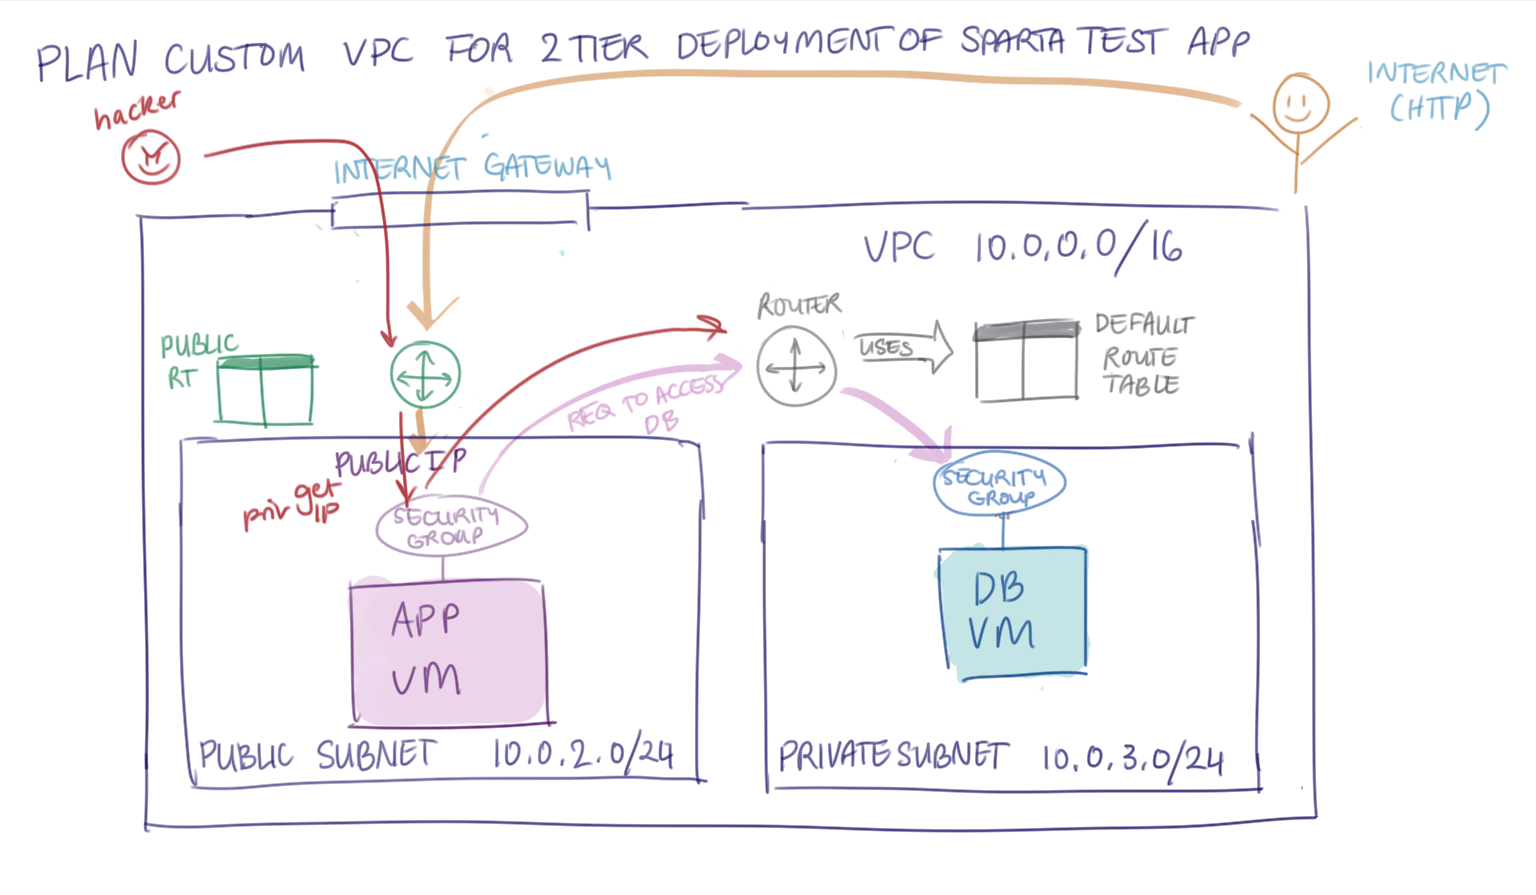 PLAN CUSTOM VPC FOR 2 TIER DEPLOYMENT OF SPARTA TEST APP
hacker
INTERNET
(HTTP)
INTERNET GATEWAY
VPC 10.0.0.0/16
PUBLIC
RT
ROUTER
USES
DEFAULT
ROUTE
TABLE
REQ TO ACCESS
DB
PUBLIC IP
get
priv IP
SECURITY
GROUP
APP
VM
PUBLIC SUBNET 10.0.2.0/24
SECURITY
GROUP
DB
VM
PRIVATE SUBNET 10.0.3.0/24